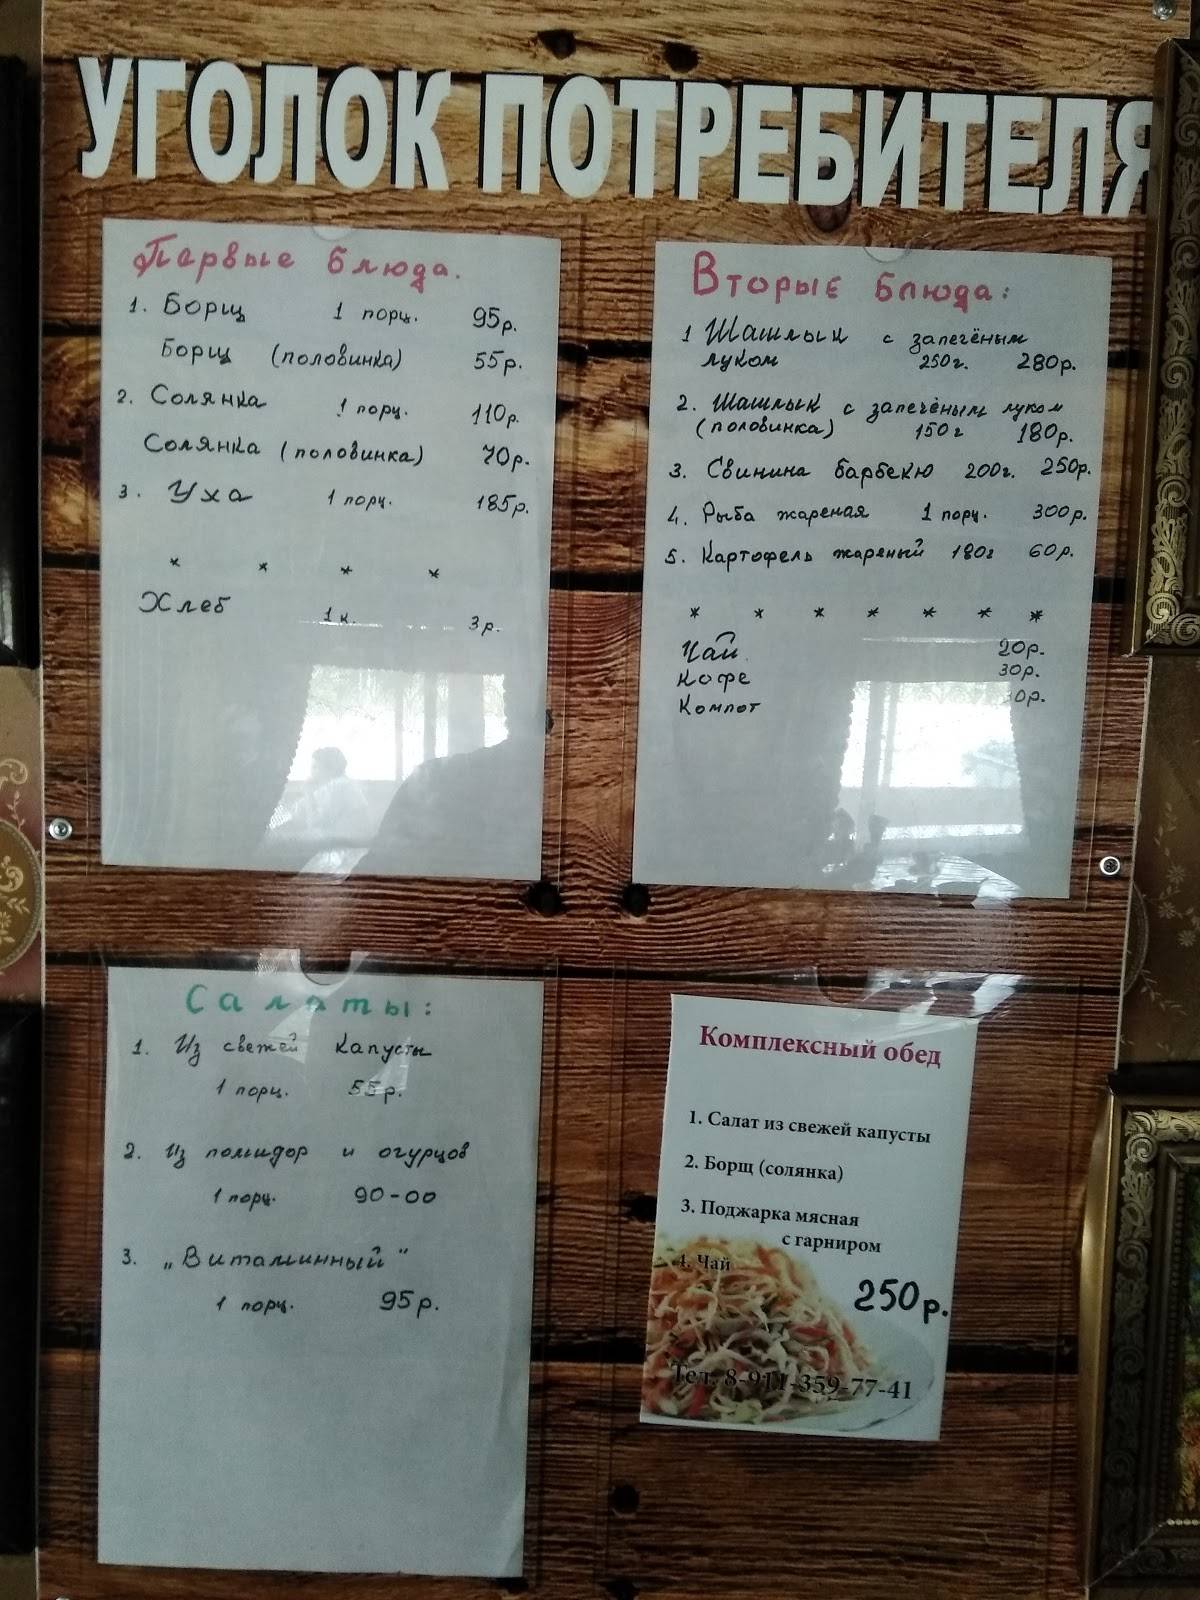 УГОЛОК ПОТРЕБИТЕЛЯ
Первые блюда.
1. Борщ 1 порц. 95р.
Борщ (половинка) 55р.
2. Солянка 1 порц. 110р.
Солянка (половинка) 70р.
3. Уха 1 порц. 185р.
* * * *
Хлеб 1 к. 3р.
Вторые блюда:
1 Шашлык с запечёным
луком 250г. 280р.
2. Шашлык с запечёным луком
(половинка) 150г 180р.
3. Свинина барбекю 200г. 250р.
4. Рыба жареная 1 порц. 300р.
5. Картофель жареный 180г 60р.
* * * * * * *
Чай 20р.
Кофе 30р.
Компот
Салаты:
1. Из свежей капусты
1 порц. 55р.
2. Из помидор и огурцов
1 порц. 90-00
3. „Витаминный"
1 порц. 95р.
Комплексный обед
1. Салат из свежей капусты
2. Борщ (солянка)
3. Поджарка мясная
с гарниром
4. Чай
250р.
Тел. 8-911-359-77-41